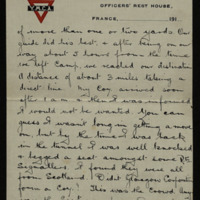 Y.M.C.A.
OFFICERS' REST HOUSE,
FRANCE, 191
of more than one or two yards. Our
guide did his best, & after being on our
way about 3 hours from the time
we left Camp, we reached our destination
A distance of about 3 miles taking a
direct line. My Coy arrived soon
after I and then I was informed
I would not be wanted. You can
guess I wasn't long in getting a move
on, but by the time I was back
in the tunnel I was well knackered
& begged a seat amongst some R.E.
Signallers. I found they were all
from Scotland & Glasgow Corporation
form a Coy! This was the Coond Day